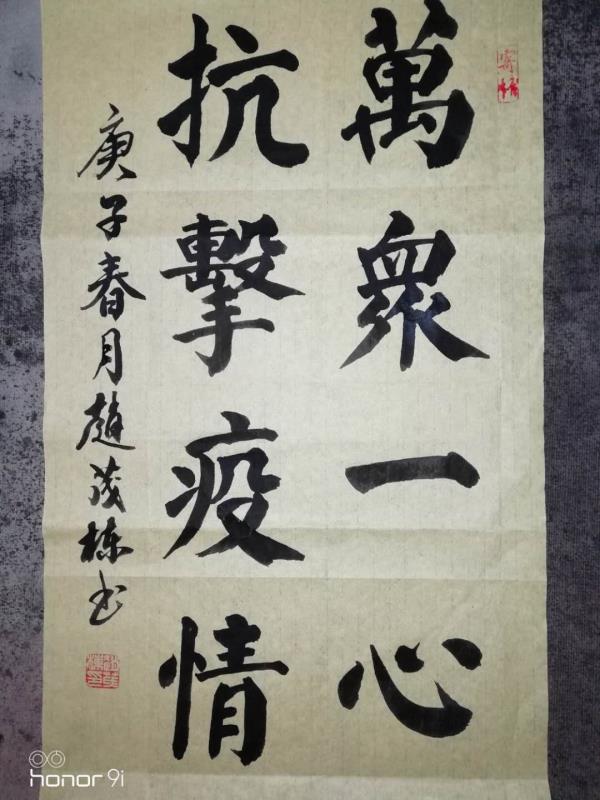 萬眾一心
抗擊疫情
庚子春月趙茂棟书
honor 9i